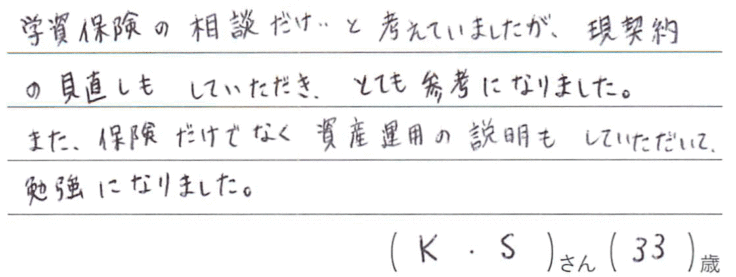 学資保険の相談だけ‥と考えていましたが、現契約
の見直しもしていただき、とても参考になりました。
また、保険だけでなく資産運用の説明もしていただいて、
勉強になりました。
(K・S)さん(33)歳